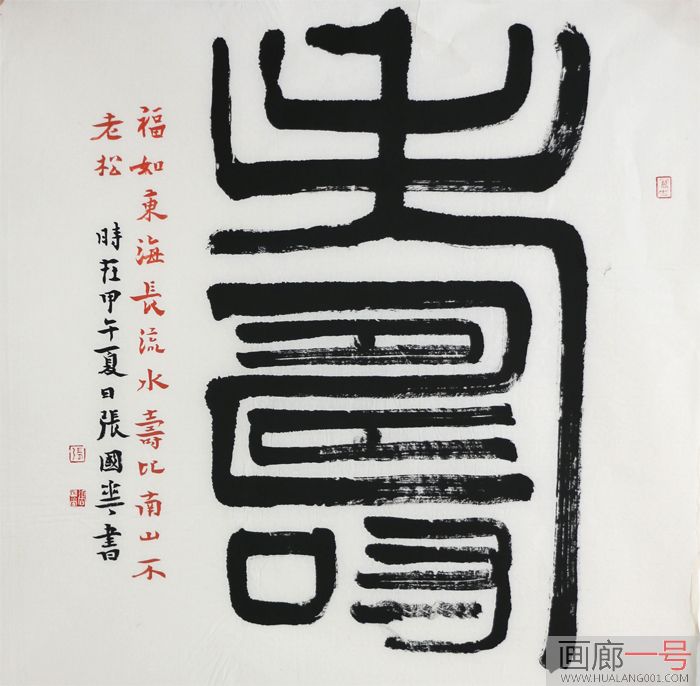 壽
福如東海長流水壽比南山不
老松 時在甲午夏日張國書
張
画廊一号
WWW.HUALANG001.COM